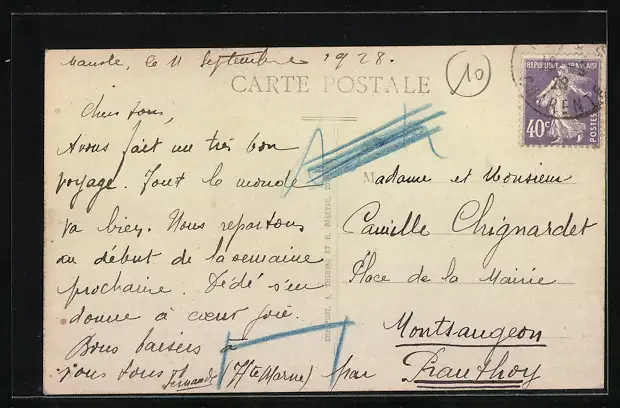 Mansle, le 11 Septembre 1928.
CARTE POSTALE
10
REPUBLIQUE FRANÇAISE
40c
POSTES
CHARENTE
Chers tous,
Avons fait un très bon
voyage. Tout le monde
va bien. Nous repartons
au début de la semaine
prochaine. Dédé s'en
donne à cœur joie.
Bons baisers à
vous tous Fernande
Madame et Monsieur
Camille Chignardet
Place de la Mairie
Montsaugeon
par Prauthoy
(Hte Marne)